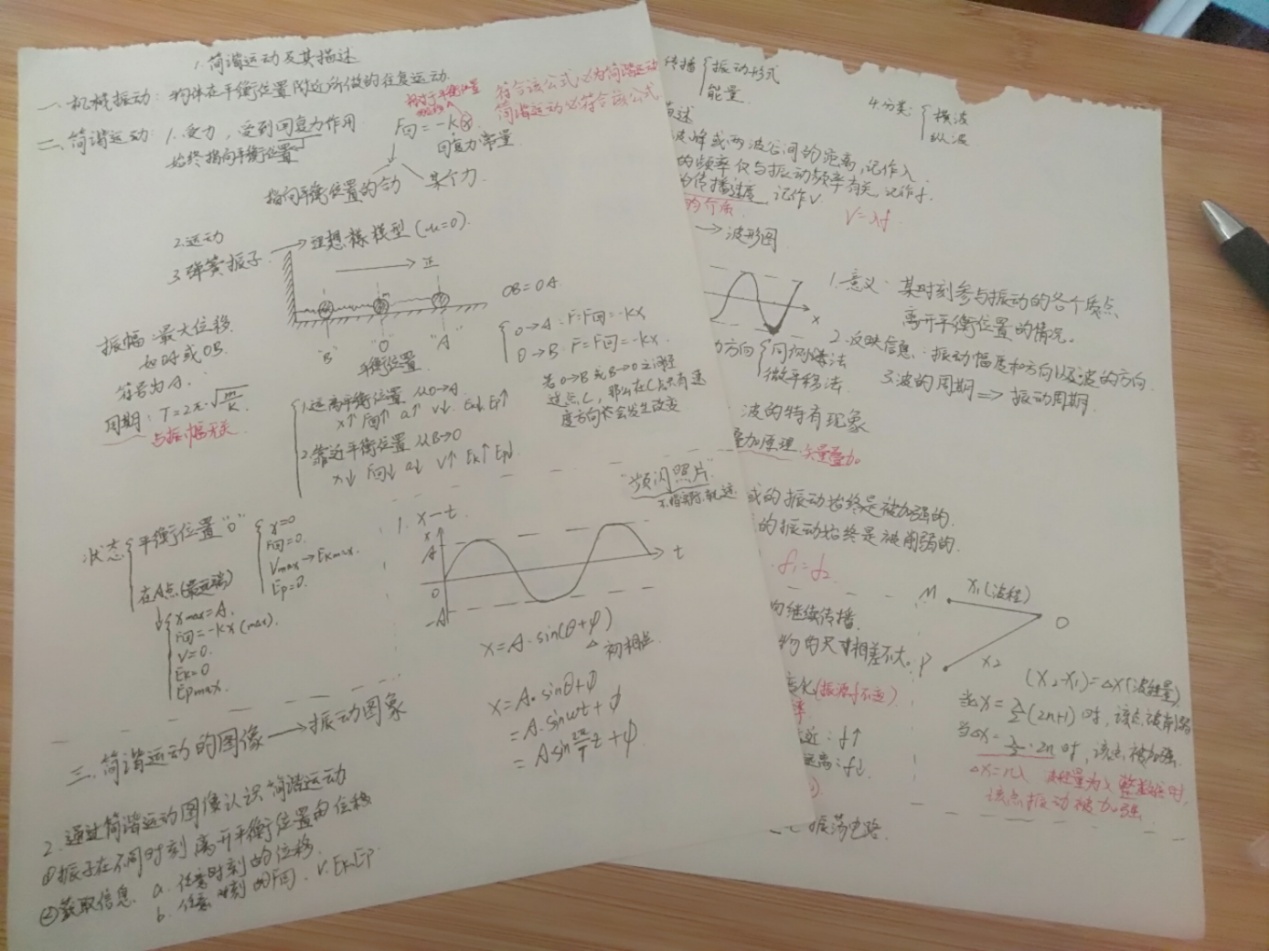 1.简谐运动及其描述
一.机械振动: 物体在平衡位置附近所做的往复运动.
二.简谐运动: 1.受力, 受到回复力作用
始终指向平衡位置
相对于平衡位置
F回=-kx
回复力常量
符合该公式必为简谐运动
简谐运动必符合该公式
指向平衡位置的合力 某个力.
2.运动
3.弹簧振子 → 理想模型(μ=0).
正
OB=OA
"B" "O" "A"
平衡位置
振幅:最大位移
如时或OB.
符号为A.
周期: T=2π·√m/k
与振幅无关
O→A: F=F回=-kx
O→B: F=F回=-kx.
若O→B或B→O之间经
过点C, 那么在C点只有速
度方向会发生改变
1.远离平衡位置 从O→A
x↑ F回↑ a↑ v↓ Ek↓ Ep↑
2.靠近平衡位置 从B→O
x↓ F回↓ a↓ v↑ Ek↑ Ep↓
"频闪照片"
状态 平衡位置"O"
x=0
F回=0.
Vmax→Ekmax.
Ep=0.
在A点(最远端)
xmax=A.
F回=-kx(max).
V=0.
Ek=0
Epmax.
1. x-t
x
A
O
-A
t
x=A·sin(θ+φ)
初相位
x=A·sinθ+φ
=A·sinωt+φ
=A sin 2π/T t+φ.
三.简谐运动的图像→振动图象
2.通过简谐运动图像认识简谐运动
①振子在不同时刻离开平衡位置的位移
②获取信息 a.任意时刻的位移.
b.任意时刻的F回.V.Ek.Ep
传播 振动形式
能量.
4.分类: 横波
纵波
描述
波峰或两波谷间的距离,记作λ
的频率仅与振动频率有关,记作f.
的传播速度,记作V
的介质
V=λf
→波形图
x
1.意义: 某时刻参与振动的各个质点
离开平衡位置的情况.
2.反映信息:振动幅度和方向以及波的方向.
3.波的周期⇒振动周期
方向 同侧法
微平移法.
波的特有现象
叠加原理 矢量叠加
或的振动始终是被加强的.
的振动始终是被削弱的.
f1=f2
向继续传播.
物的尺寸相差不大.
M x1(波程)
O
P x2
(x2-x1)=Δx(波程差)
当Δx=λ/2(2n+1)时,该点被削弱
当Δx=λ/2·2n时,该点被加强
Δx=nλ 波程差为λ整数倍时,
该点振动被加强
变化(振源不变)
率
近:f↑
远离:f↓
振荡电路.